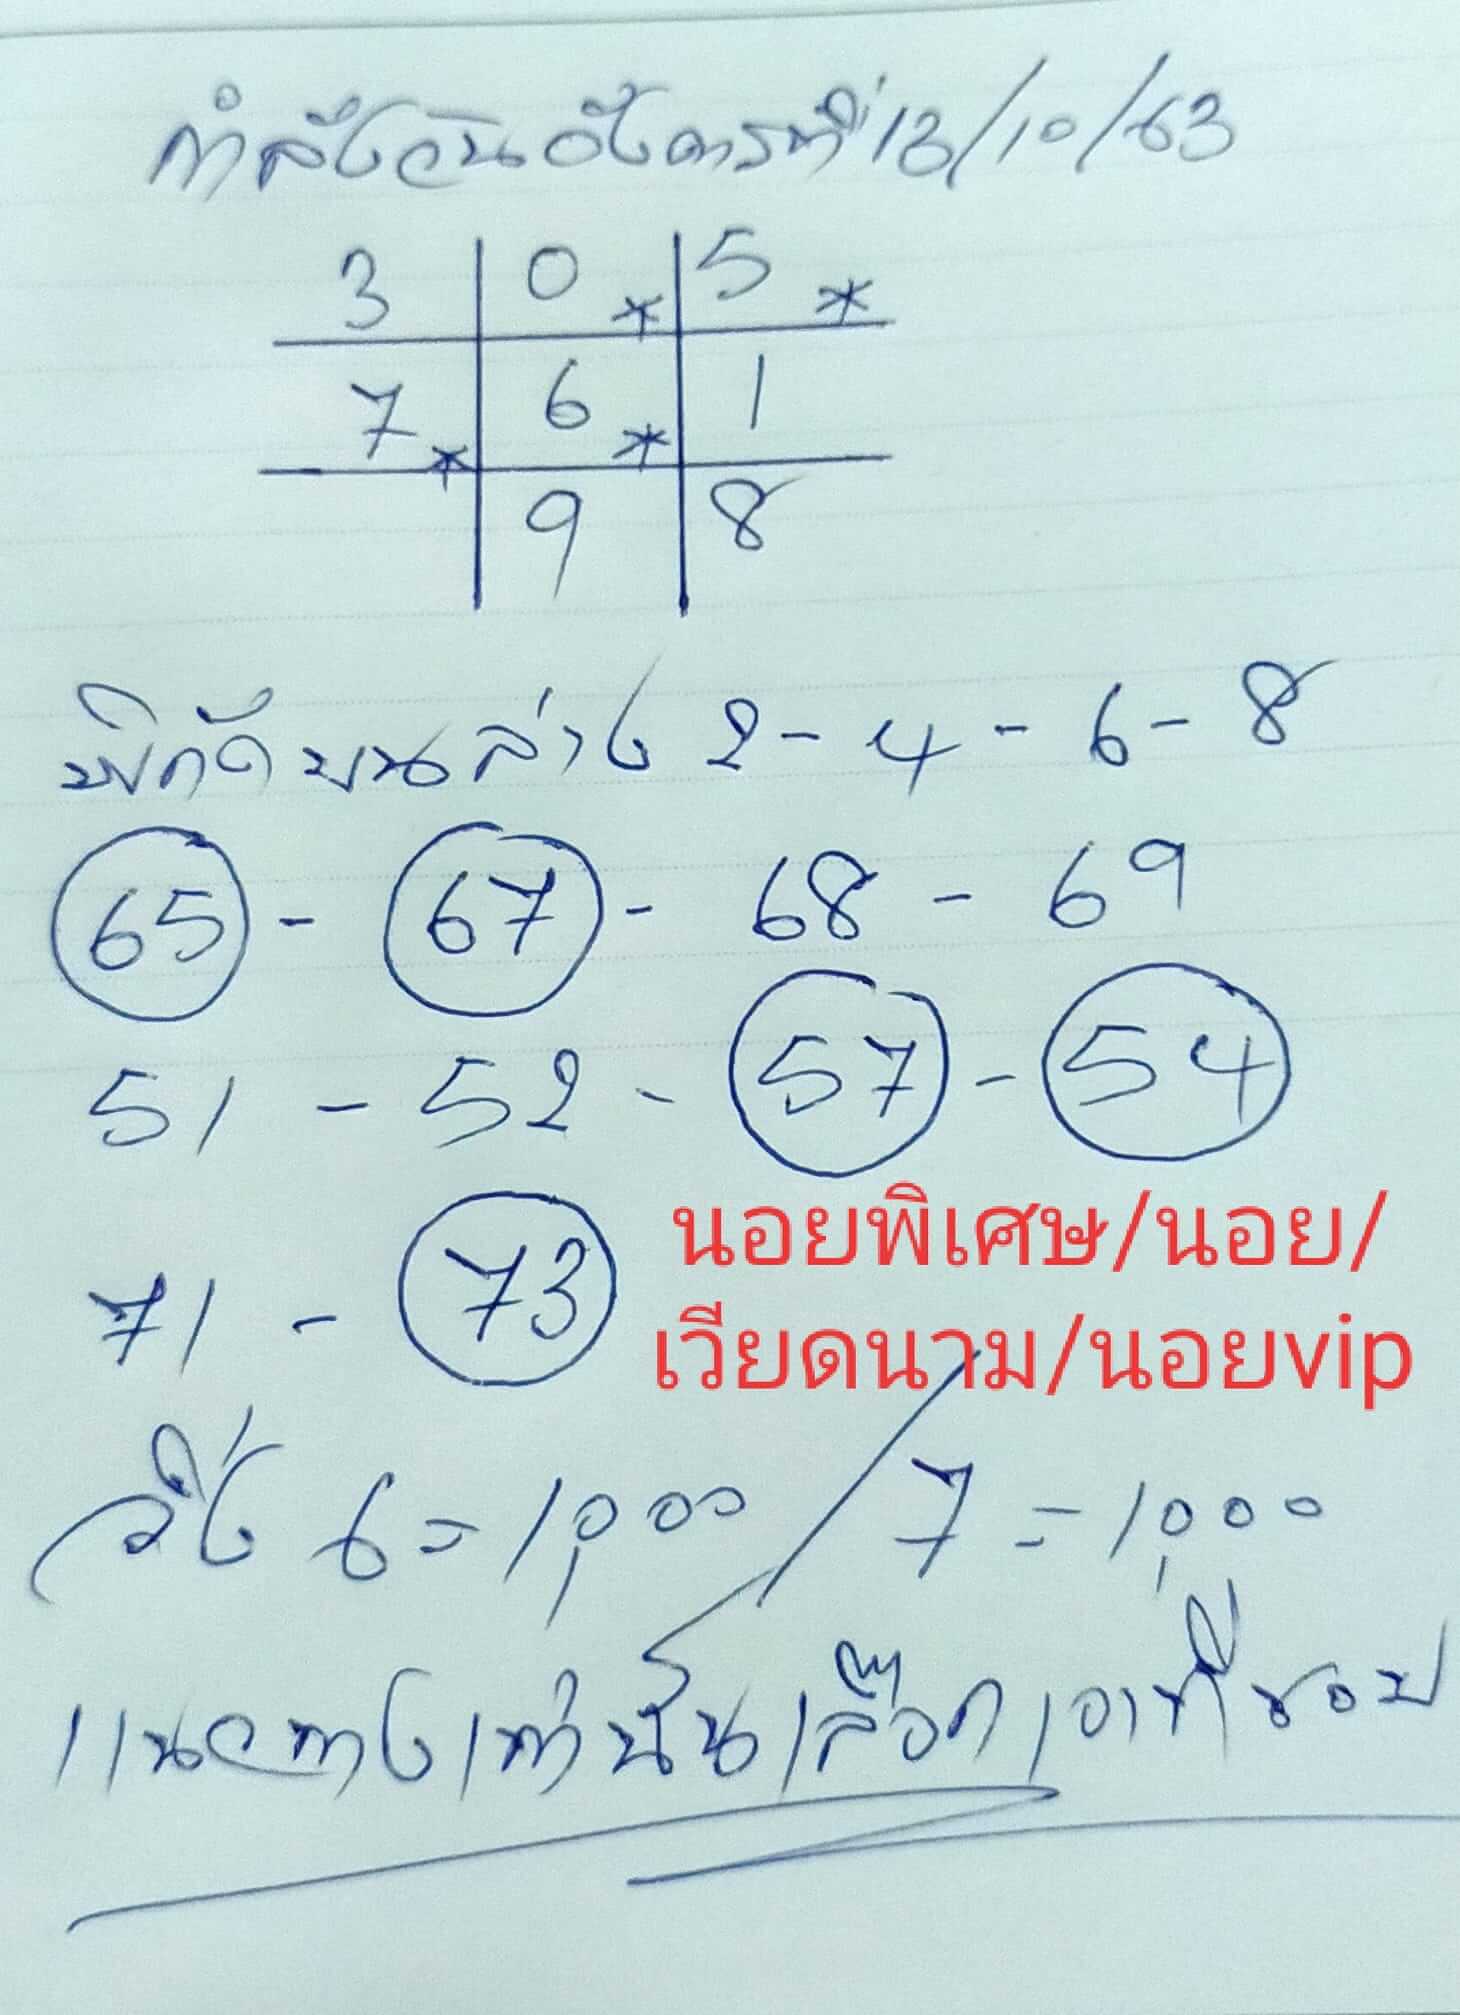 กำลังวันอังคารที่ 13/10/63
3 0* 5*
7* 6* 1
9 8
พิกัดบนล่าง 2-4-6-8
65 - 67 - 68 - 69
51 - 52 - 57 - 54
71 - 73
นอยพิเศษ/นอย/
เวียดนาม/นอยvip
วิ่ง 6=1,000 / 7=1,000
แนวทางเท่านั้นเลือกเอาที่ชอบ